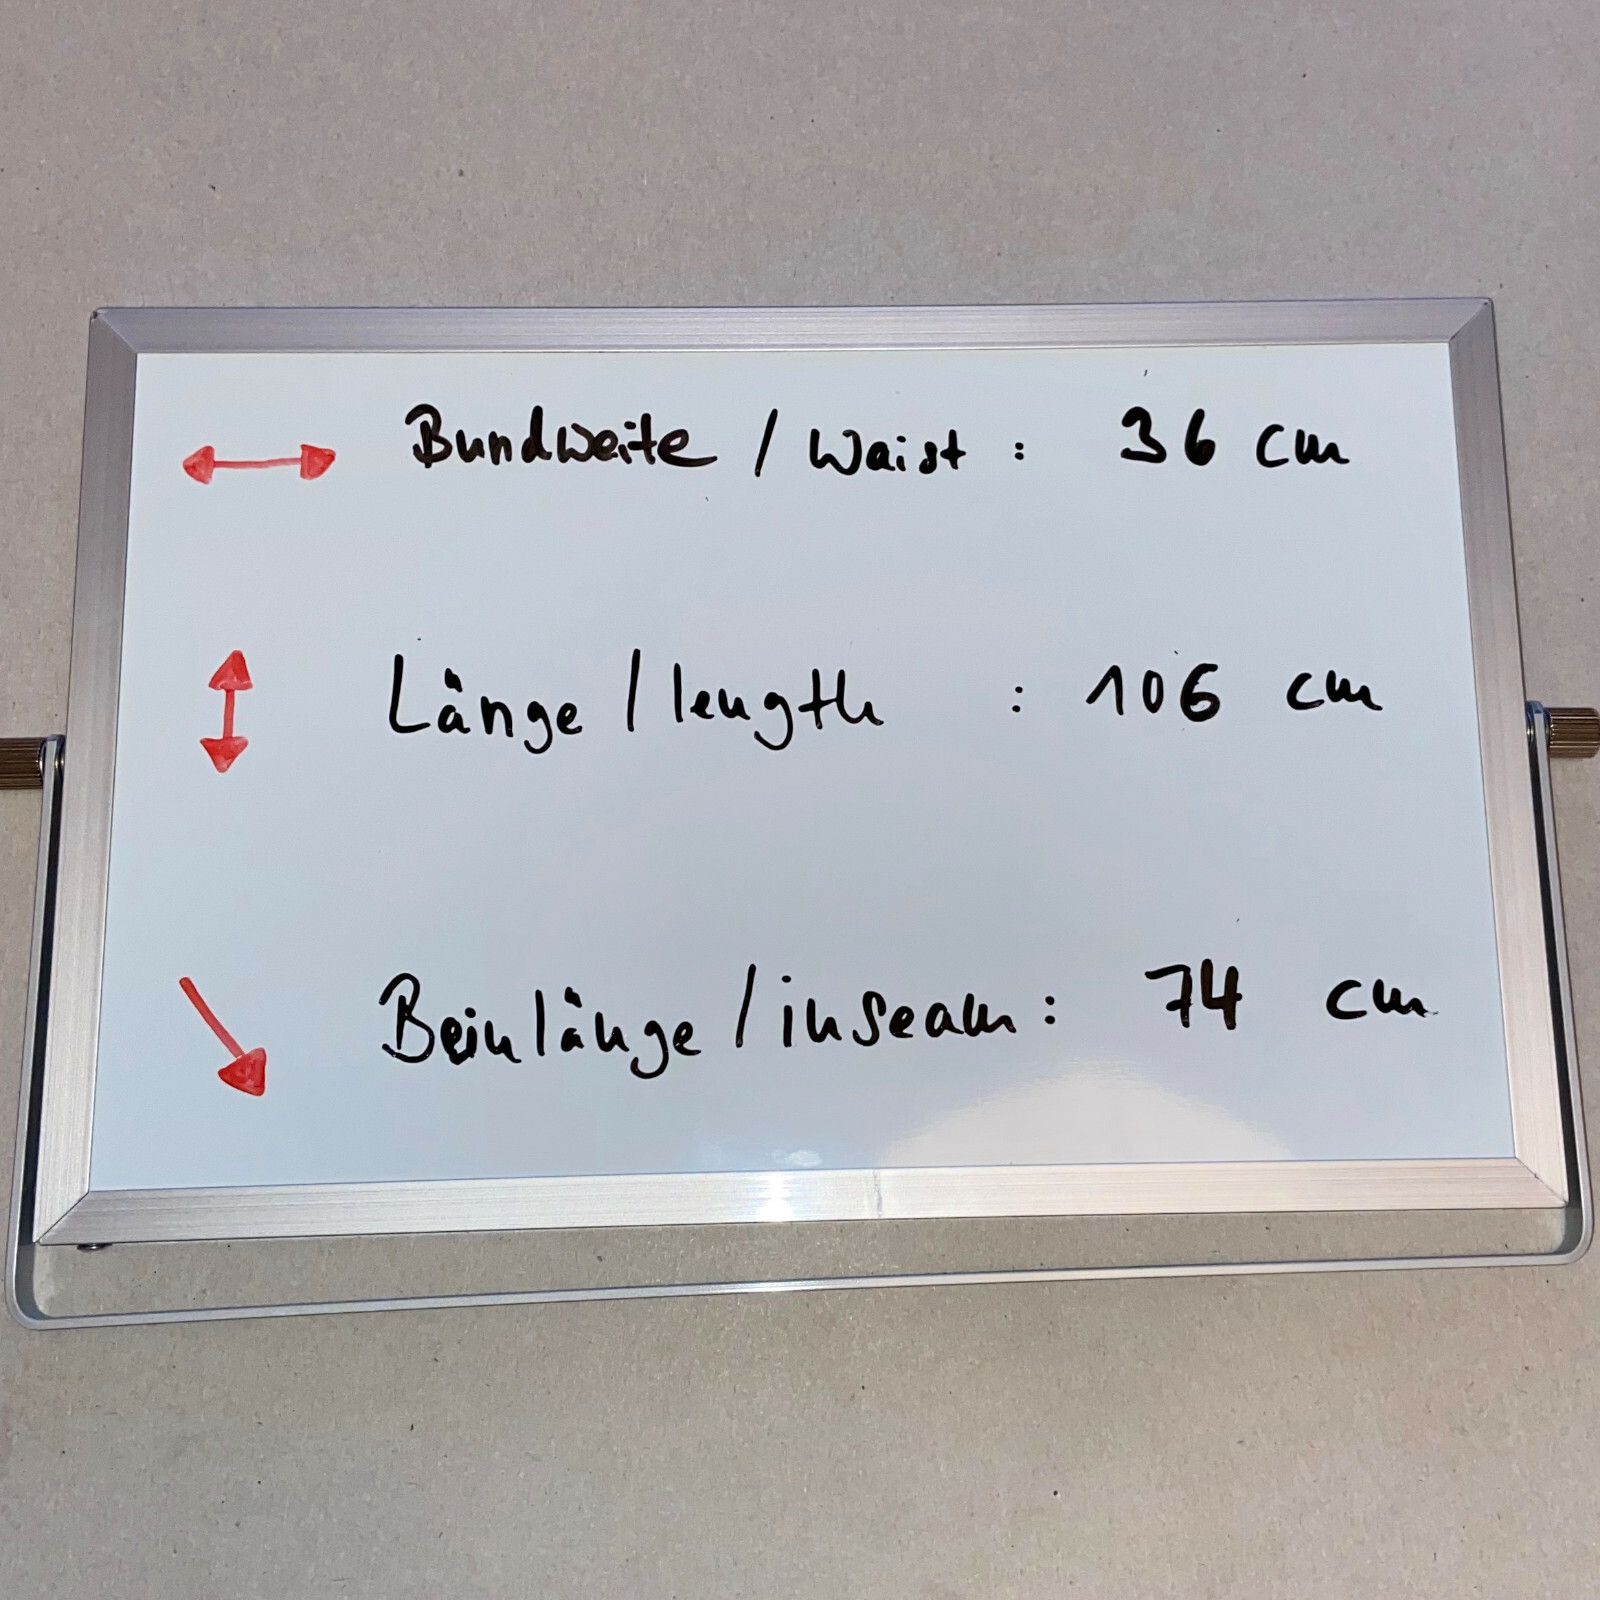 Bundweite / Waist : 36 cm
Länge / length : 106 cm
Beinlänge / inseam : 74 cm